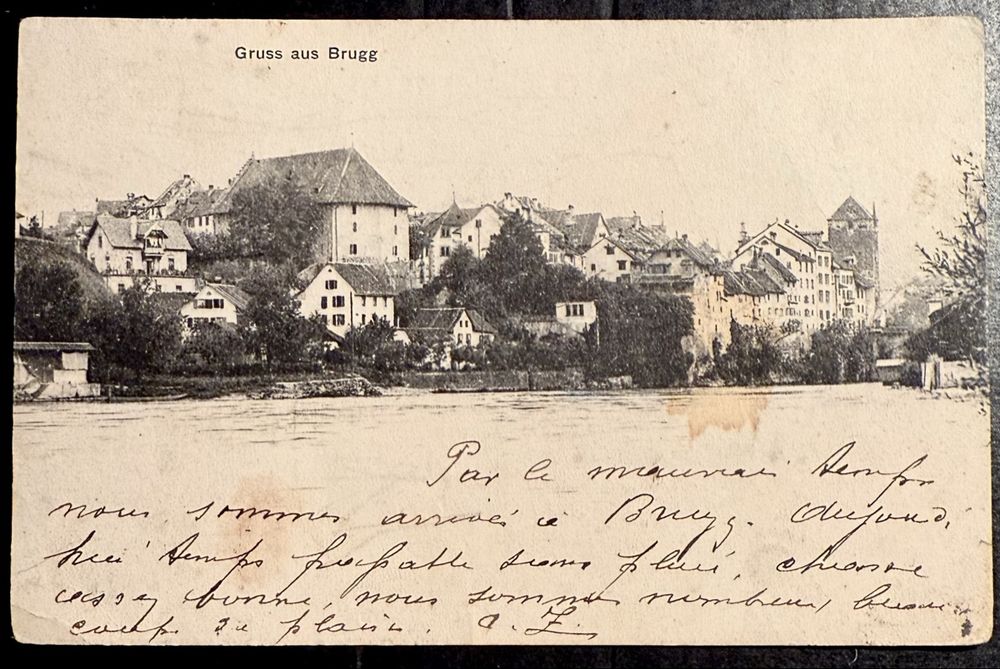 Gruss aus Brugg
Par le mauvais temps
nous sommes arrivés à Brugg. Aujourd'
hui temps passable sans pluie, chasse
assez bonne, nous sommes nombreux, beau
coup de plaisir. A. Z.